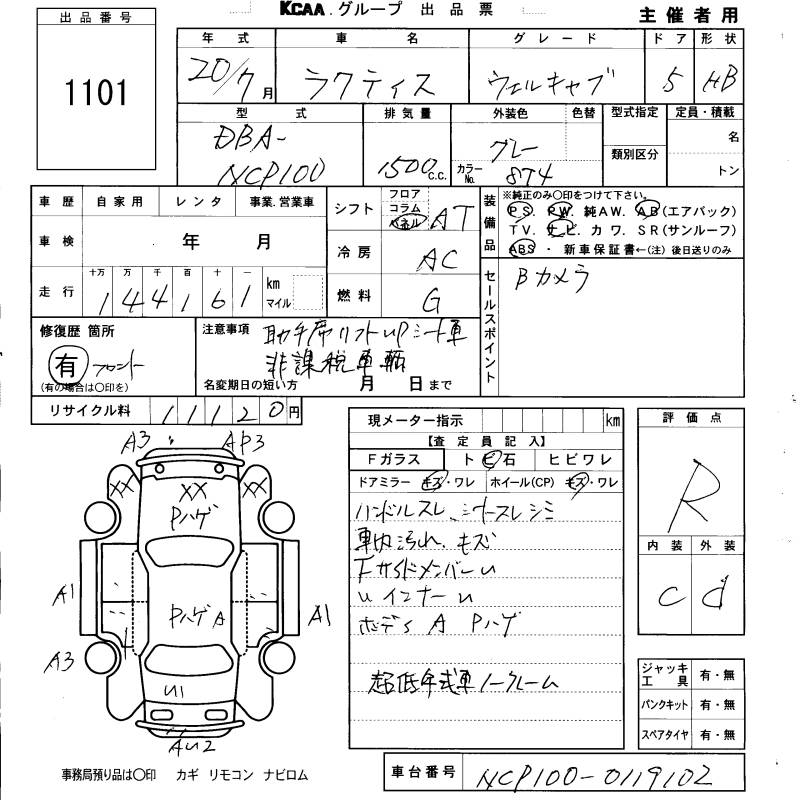 KCAA.グループ 出品票
主催者用
出品番号
1101
年式 車名 グレード ドア 形状
20/7月 ラクティス ウェルキャブ 5 HB
型式 排気量 外装色 色替 型式指定 定員・積載
DBA-
NCP100 1500c.c. グレー
カラーNo. 874
類別区分
名
トン
車歴 自家用 レンタ 事業.営業車
車検 年 月
走行 十万 万 千 百 十 一
1 4 4 1 6 1 km マイル
シフト フロア コラム パネル AT
冷房 AC
燃料 G
装備品
※純正のみ○印をつけて下さい。
PS. PW. 純AW. AB(エアバック)
TV. ナビ. カワ. SR(サンルーフ)
ABS・新車保証書←(注)後日送りのみ
セールスポイント
Bカメラ
修復歴 箇所
有 フロント
(有の場合は○印を)
注意事項
助手席リフトUPシート車
非課税車輌
名変期日の短い方 月 日まで
リサイクル料 11120円
現メーター指示 km
【査定員記入】
Fガラス トビ石 ヒビワレ
ドアミラー キズ・ワレ ホイール(CP) キズ・ワレ
ハンドルスレ、シートスレシミ
車内汚れ、キズ
FサイドメンバーU
Uインナー U
ボデs A Pハゲ
超低年式車ノークレーム
評価点
R
内装 外装
C d
ジャッキ工具 有・無
パンクキット 有・無
スペアタイヤ 有・無
A3 AP3
XX XX XX
Pハゲ
A1 A1
Pハゲ A
A3
U1
AU2
事務局預り品は○印 カギ リモコン ナビロム
車台番号 NCP100-0119102